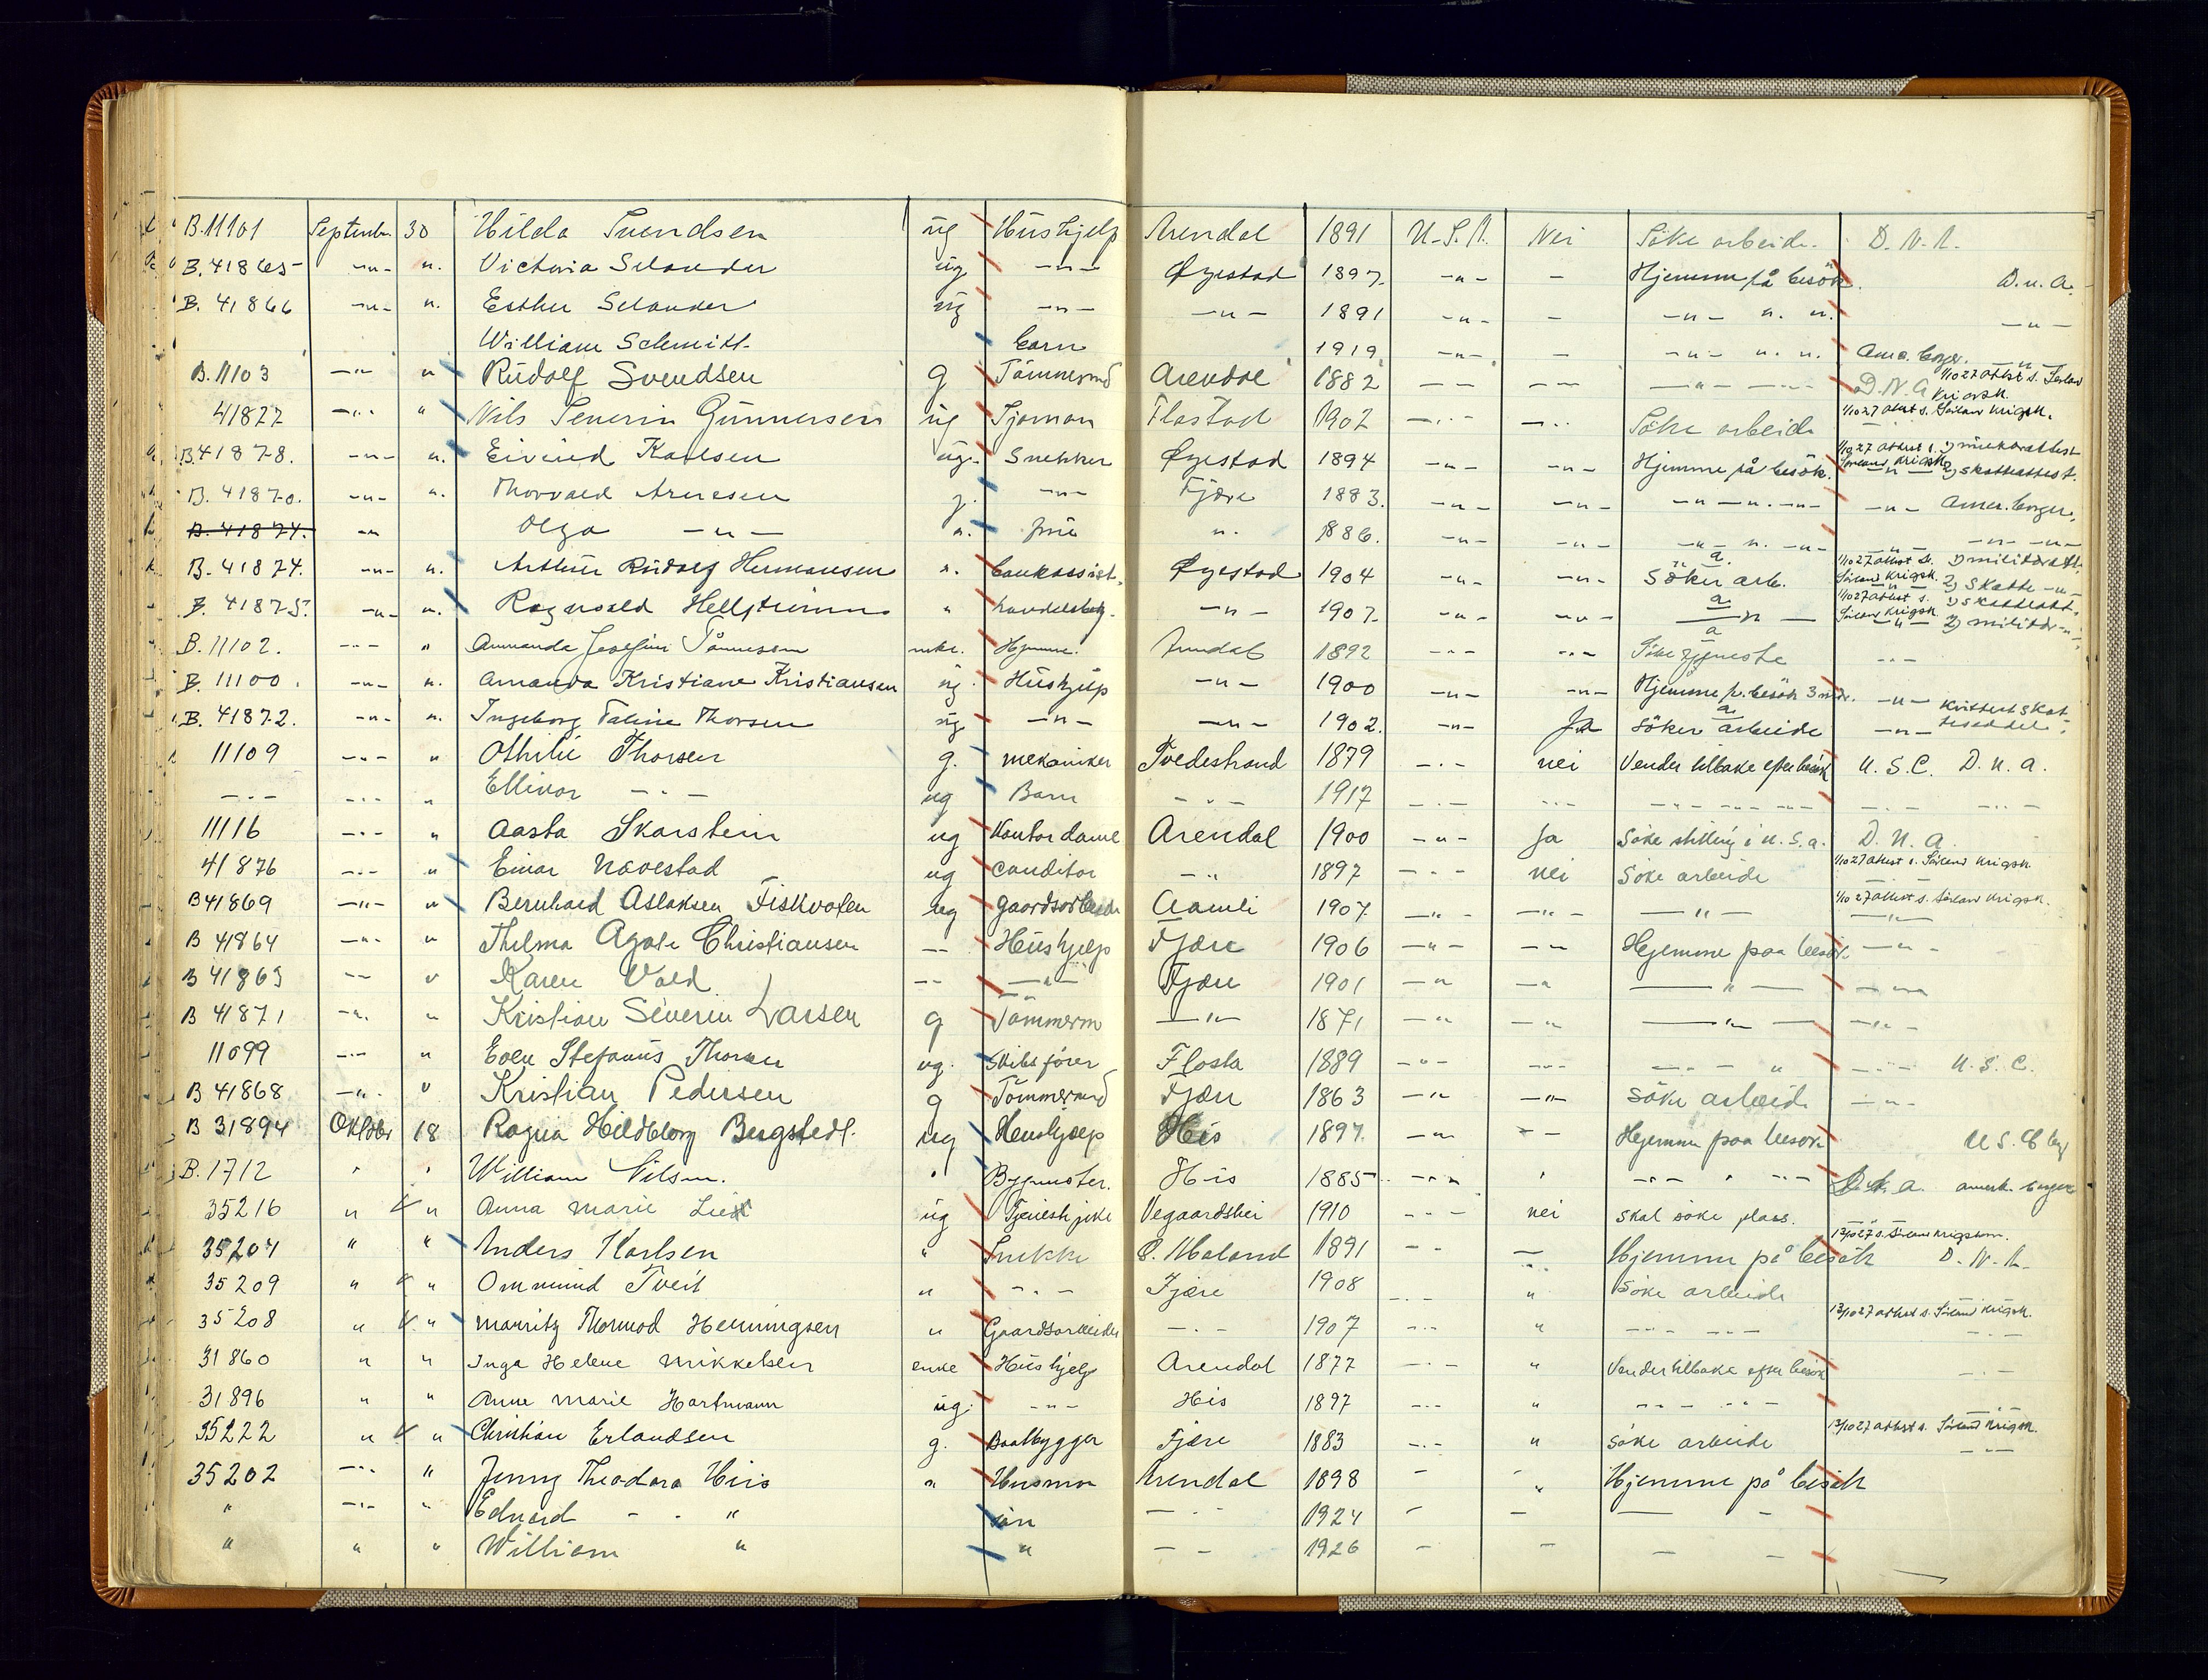 B.11101 Septemb. 30 Hilda Svendsen ug Hushjelp Arendal 1891 U.S.A. Nei Söke arbeide. D.N.A.
B.41865 -"- ". Victoria Selander ug -"- Øyestad 1897. -"- - Hjemme på besök. D.n.a.
B. 41866 -"- ". Esther Selander ug -"- -"- 1891 -"- - -"- ". ". -"-
William Schmitt. barn 1919 -"- - -"- ". ". Amr. borger. -"-
B.11103 -"- " Rudolf Svendsen g Tömmermd Arendal 1882 - - - - - " - - - D.N.A 1/10 27 attest s. Sörland Krigsk.
41877 -"- " Nils Severin Gunnersen ug Sjöman Flostad 1902 -"- -"- Söke arbeide 1/10 27 attest s. Sörlan Krigsk.
B.41878. -"- ". Eivind Karlsen ug. Snekker Øyestad 1894 -"- -"- Hjemme på besök. 1/10 27 attest s. Sörland Krigsk. -"- 2) skatteattest.
B. 41870. -"- ". Thorvald Arnesen g. -"- Fjære 1883. -"- -"- -"- -"- -"- -"- Amer. borger.
B. 41874. -"- Olga -"- ". frue ". 1886. -"- -"- -"- ". -"- -"- -"- -"-
B. 41874. -"- ". Arthur Rudolf Hermansen ". bankassist. Øyestad 1904 -"- -"- Söker arb. 1/10 27 attest s. Sörland Krigsk. 1) militæratt. 2) Skatte -"-
B. 41875. -"- ". Ragnvald Hellstrimm " handelsbetj. -"- 1907. -"- -"- -"- 1/10 27 attest s. Sörlan Krigsk. 1) skatteatt. 2) militær -"-
B. 11102. -"- " Amanda Josefine Tönnesen enke. Hjemme. Arendal 1892 -"- -"- Söke tjeneste -"-
B. 11100. -"- ". Amanda Kristiane Kristiansen ug Hushjelp -"- 1900 -"- -"- Hjemme p. besök 3 mdr. -"- Kvittert skat-
B. 41872. -"- ". Ingeborg Taline Thorsen ug -"- -"- 1902. -"- Ja söker arbeide -"- teseddel.
11109 -"- " Othilie Thorsen g. mekaniker Tvedestrand 1879 -"- nei Vender tilbake efter besök U.S.C. D.n.a.
-"- -"- " Ellinor -"- ug Barn -"- 1917 -"- -"- -"- -"- -"- -"- -"-
11116 -"- " Aasta Skarstein ug Kontordame Arendal 1900 -"- Ja Söke stilling i U.S.a. D.N.a.
41876 -"- " Einar Navestad ug Conditor -"- 1897 -"- nei Söke arbeide 1/10 27 attest s. Sörland Krigsk.
B41869 -"- " Bernhard Aslaksen Fiskvaten ug gaardsarbeider Aamli 1907. -"- -"- -"- 1/10 27 attest s. Sörlan Krigsk. -"-
B 41864 -"- " Thelma Agate Christiansen -- Hushjelp Fjære 1906 -"- -"- Hjemme paa besök. -"-
B 41863 -- " Karen Vold -- -"- Fjære 1901 -" -" -"- -"-
B 41871 -". " Kristian Severin Larsen g Tömmerm -"- 1871 -" -" -"- -"-
11099 -"- " Even Stefanus Thorsen ug. Skibsförer Flosta 1889 -"- -"- -"- " -"- U.S.C.
B 41868 -". " Kristian Pedersen g Tömmermd Fjære 1863 -" -"- Söke arbeide -"-
B 31894 Oktober 18 Ragna Hildborg Bergstedt. ug Hushjelp His 1897. -"- - - Hjemme paa besök U.S.C bg
B.1712 " " William Nilsen. " Bygmester. His 1885 -"- " -"- " -"- D.n.a. amerik. borger
35216 " " Anna Marie Lie ug Tjenestpike Vegaardshei 1910 -"- nei skal söke plass.
35204 " " Anders Karlsen " Snekker Ö. Moland 1891 -- -"- Hjemme på besök D.N.A.
35209 " " Ommund Tveit " -"- Fjære 1908 -"- " Söke arbeide
35208 " " Mauritz Thormod Henningsen " Gaardsarbeider -"- 1907 -"- " -"- -"- 13/10 27 attest s. Sörland Krigsk. -"-
31860 " " Inga Helene Mikkelsen enke Hushjelp Arendal 1877 -"- " Vender tilbake efter besök -"-
31896 " " Anne Marie Hartmann ug. -"- His 1897 -"- " -"- -"- -"-
35222 " " Christian Erlandsen g. Baatbygger Fjære 1883 -"- " Söke arbeide 13/10 27 attest s. Sörland Krigsk. -"-
35202 -"- " Jenny Theodora Hiis " Husmor Arendal 1898 - " Hjemme på besök
" -"- " Edvard - - " sön - - 1924 - - - -
" " " William " " - - 1926 - - - -